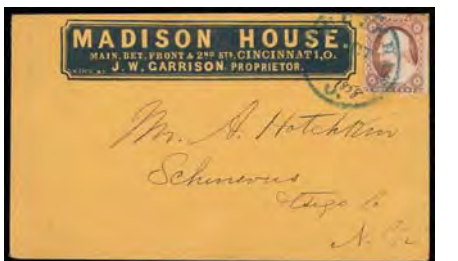 MADISON HOUSE.
MAIN, BET. FRONT & 2ND STS, CINCINNATI, O.
J. W. GARRISON PROPRIETOR.
1858
Mr. A. Hotchkin
Schenevus
Otsego Co
N. Y.